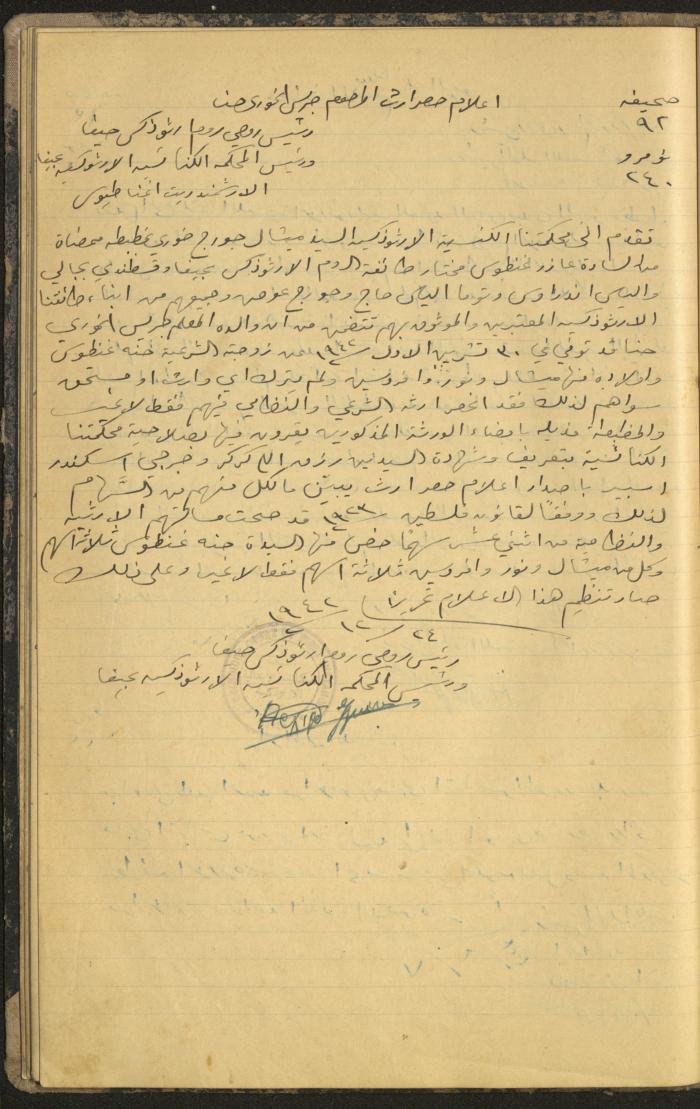 صحيفه
٩٢
نومرو
٢٤٠
اعلام حصر ارث المرحوم جريس الخوري حنا
رئيس روحي روم ارثوذكس حيفا
ورئيس المحكمه الكنائسيه الارثوذكسيه بحيفا
الارشمندريت اغناطيوس
تقدم الى محكمتنا الكنسية الارثوذكسيه السيد ميشال جورج خوري بمضبطه ممضاة
من الساده عازر غنطوس مختار طائفة الروم الارثوذكس بحيفا وقسطندي بجالي
والياس اندراوس وتوما الياس حاج وجورج عوض وجميعهم من ابناء طائفتنا
الارثوذكسيه المعتبرين والموثوق بهم تتضمن من ان والده المعلم جريس الخوري
حنا قد توفي في ٣٠ تشرين الاول سنة ١٩٤٢ عن زوجته الشرعية حنه غنطوس
واولاده منها ميشال ونور وافروسين ولم يترك اي وارث او مستحق
سواهم لذلك فقد انحصر ارثه الشرعي والنظامي فيهم فقط لا غير
والمضبطة مذيله بامضاء الورثة المذكورين يقرون فيها لصلاحية محكمتنا
الكنائسية بتعريف وشهادة السيدين رزق الله كركر وجرجي اسكندر
باصدار اعلام حصر ارث يبين ما لكل منهم من السهام
لذلك ووفقاً لقانون فلسطين سنة ١٩٢٣ قد صحت مسألتهم الارثية
والنظامية من اثني عشر سهماً خص منها السيدة حنه غنطوس ثلاثة اسهم
وكل من ميشال ونور وافروسين ثلاثة اسهم فقط لا غير وعلى ذلك
صار تنظيم هذا الاعلام تحريراً
٢٤/١٢/١٩٤٢
رئيس روحي روم ارثوذكس حيفا
ورئيس المحكمه الكنائسيه الارثوذكسيه بحيفا